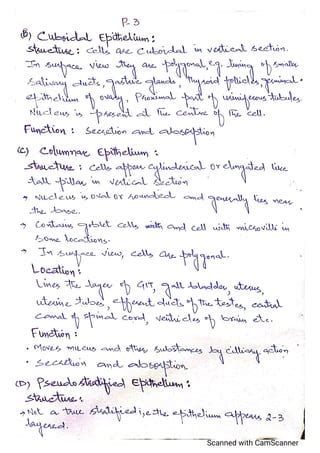 P. 3
(B) Cuboidal Epithelium :
Structure : cells are Cuboidal in vertical section.
In surface view they are polygonal, e.g. lining of smaller
Salivary ducts, gastric glands, Thyroid follicles, germinal -
epithelium of ovary, Proximal part of uriniferous tubules.
Nucleus is present at the centre of the cell.
Function : Secretion and absorption
(C) Columnar Epithelium :
structure : cells appear cylinderical or elongated like
tall pillar in vertical section
→ nucleus is oval or rounded and generally lies near
the base.
→ Contains goblet cells with and cell with microvilli in
some locations.
→ In surface view, cells are polygonal.
Location :
Lines the layer of GIT, gall bladder, uterus,
uterine tubes, efferent ducts of the testes, central
canal of spinal cord, ventricles of brain etc.
Function :
• Moves mucus and other substances by cilliary action
• Secretion and absorption
(D) Pseudostratified Epithelium :
Structure :
→ Not a true stratified i,e the epithelium appears 2-3
layered.
Scanned with CamScanner